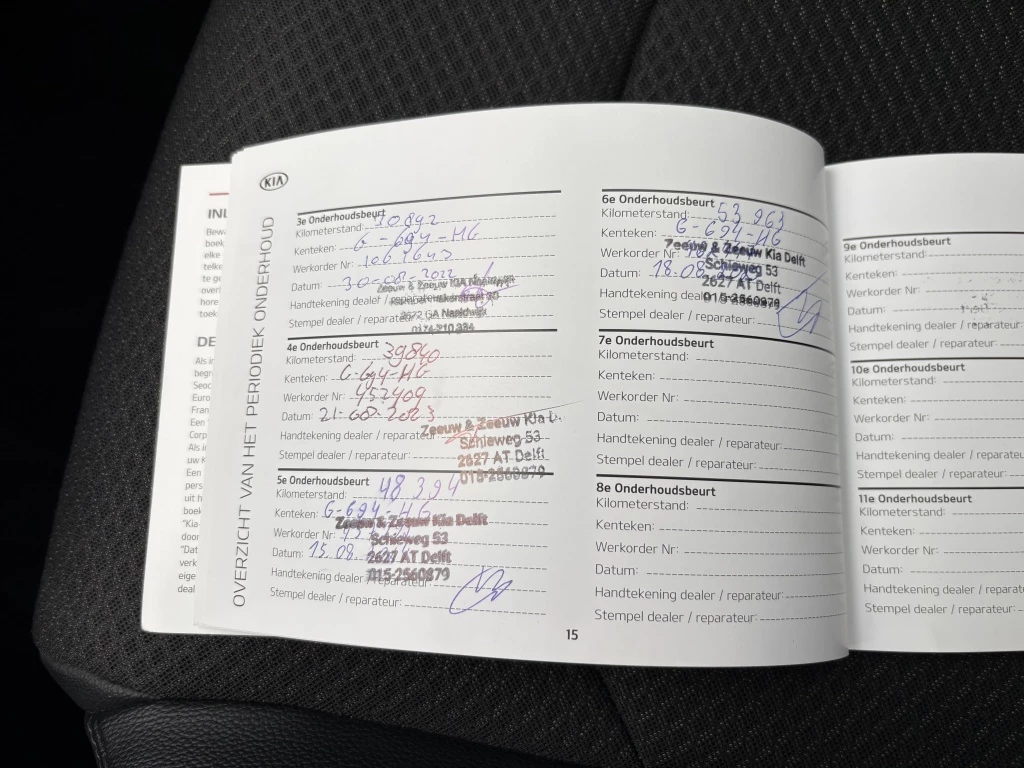 KIA
OVERZICHT VAN HET PERIODIEK ONDERHOUD
3e Onderhoudsbeurt
Kilometerstand: 30892
Kenteken: G-694-HG
Werkorder Nr:
Datum: 30-08-2022
Handtekening dealer / reparateur:
Zeeuw & Zeeuw KIA Naaldwijk
Stempel dealer / reparateur:
2672 GA Naaldwijk
0174-210 334
4e Onderhoudsbeurt
Kilometerstand: 39840
Kenteken: G-694-HG
Werkorder Nr: 452409
Datum: 21-08-2023
Handtekening dealer / reparateur:
Stempel dealer / reparateur:
Zeeuw & Zeeuw Kia
Schieweg 53
2627 AT Delft
015-2560879
5e Onderhoudsbeurt
Kilometerstand: 48394
Kenteken: G-694-HG
Werkorder Nr:
Datum: 15.08.
Handtekening dealer / reparateur:
Stempel dealer / reparateur:
Zeeuw & Zeeuw Kia Delft
Schieweg 53
2627 AT Delft
015-2560879
6e Onderhoudsbeurt
Kilometerstand: 53963
Kenteken: G-694-HG
Werkorder Nr:
Datum: 18.08.
Handtekening dealer /
Stempel dealer / reparateur:
Zeeuw & Zeeuw Kia Delft
Schieweg 53
2627 AT Delft
015-2560879
7e Onderhoudsbeurt
Kilometerstand:
Kenteken:
Werkorder Nr:
Datum:
Handtekening dealer / reparateur:
Stempel dealer / reparateur:
8e Onderhoudsbeurt
Kilometerstand:
Kenteken:
Werkorder Nr:
Datum:
Handtekening dealer / reparateur:
Stempel dealer / reparateur:
15
9e Onderhoudsbeurt
Kilometerstand:
Kenteken:
Werkorder Nr:
Datum:
Handtekening dealer / reparateur:
Stempel dealer / reparateur:
10e Onderhoudsbeurt
Kilometerstand:
Kenteken:
Werkorder Nr:
Datum:
Handtekening dealer / reparateur:
Stempel dealer / reparateur:
11e Onderhoudsbeurt
Kilometerstand:
Kenteken:
Werkorder Nr:
Datum:
Handtekening dealer / reparateur:
Stempel dealer / reparateur: